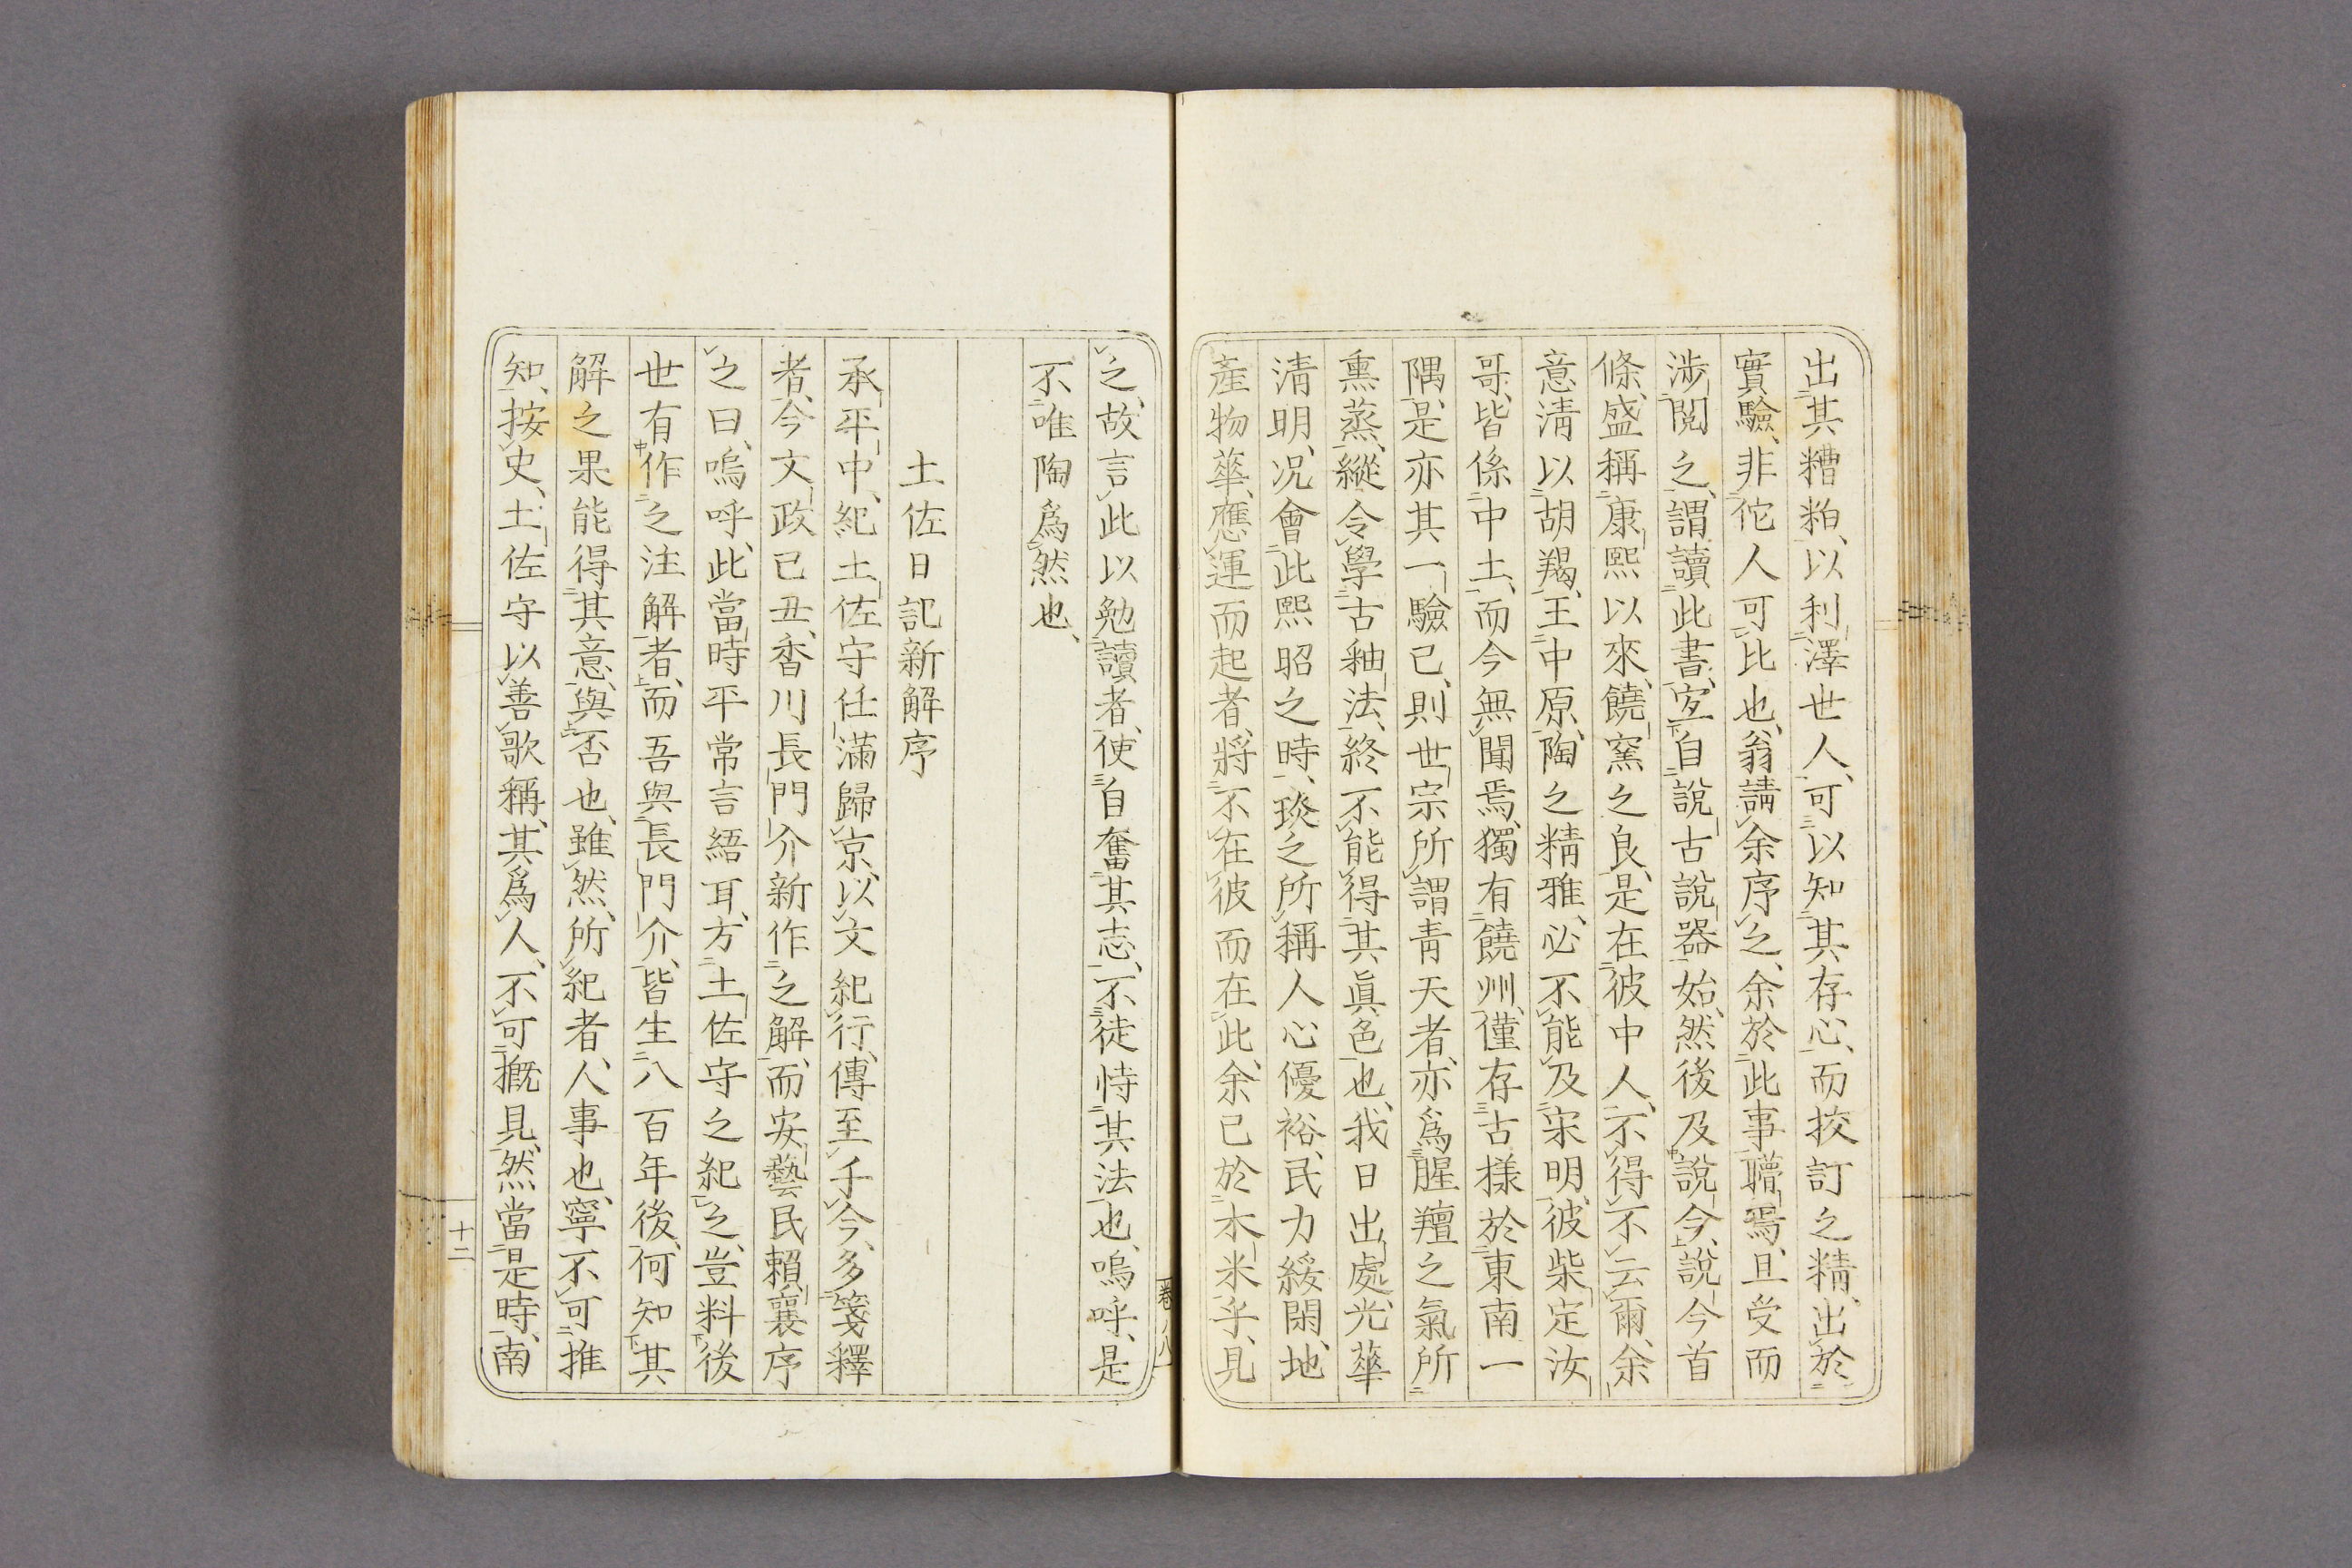 出其糟粕、以利澤世人、可以知其存心、而挍訂之精、出於
實驗、非佗人可比也、翁請余序之、余於此事瞢焉、且受而
涉閱之、謂讀此書、宜自說古說器始、然後及說今、說今首
條、盛稱康熙以來、饒窯之良、是在彼中人、不得不云爾、余
意淸以胡羯、王中原、陶之精雅、必不能及宋明、彼柴定汝
哥、皆係中土、而今無聞焉、獨有饒州、僅存古樣於東南一
隅、是亦其一驗已、則世宗所謂靑天者、亦爲腥羶之氣所
熏蒸、縱令學古釉法、終不能得其眞色也、我日出處、光華
淸明、况會此熙昭之時、琰之所稱人心優裕、民力綏閑、地
產物華、應運而起者、將不在彼而在此、余已於木米乎、見
之、故言此以勉讀者、使自奮其志、不徒恃其法也、嗚呼、是
不唯陶爲然也、
土佐日記新解序
承平中、紀土佐守任滿歸京、以文紀行、傳至于今、多箋釋
者、今文政己丑、香川長門介新作之解、而安藝民賴襄序
之曰、嗚呼、此當時平常言語耳、方土佐守之紀之、豈料後
世有作之注解者、而吾與長門介、皆生八百年後、何知其
解之果能得其意、與否也、雖然、所紀者、人事也、寧不可推
知、按史、土佐守以善歌稱、其爲人、不可概見、然當是時、南
卷八
十二